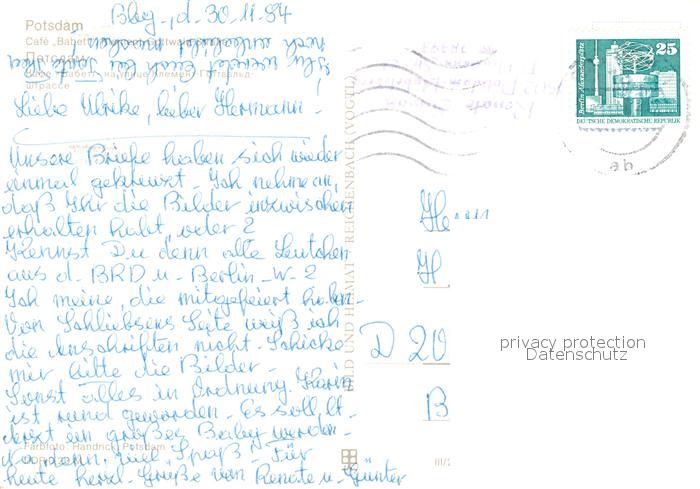 Bbg., d. 30.11.84
Potsdam
Café „Babett"
Потсдам
штрассе
Liebe Ulrike, lieber Hermann -
Unsere Briefe haben sich wieder
einmal gekreuzt - Ich nehme an,
daß Ihr die Bilder inzwischen
erhalten habt, oder?
Kennst Du denn alle Leutchen
aus d. BRD u. Berlin-W-?
Ich meine, die mitgefeiert haben.
Von Schliebsens Seite weiß ich
die Anschriften nicht. Schicke
mir bitte die Bilder -
Sonst alles in Ordnung. Karin
ist rund geworden - Es soll lt.
Arzt ein großes Baby werden -
na denn, viel Spaß - Für
heute herzl. Grüße von Renate u. Günter
Farbfoto: Handrick, Potsdam
BILD UND HEIMAT REICHENBACH (VOGTL)
25
Berlin, Alexanderplatz
DEUTSCHE DEMOKRATISCHE REPUBLIK
ab
Herrn
H
D 20
B
privacy protection
Datenschutz
III/